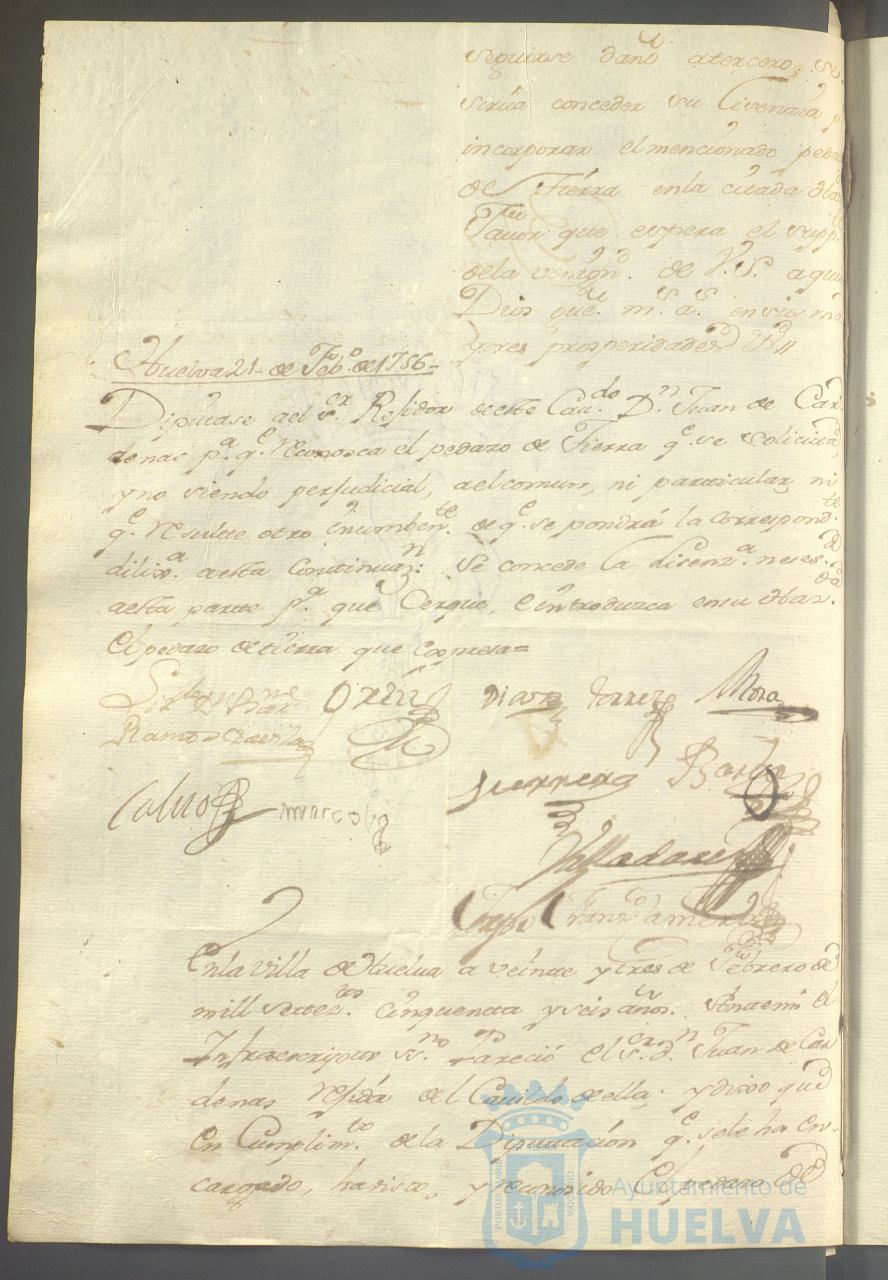 seguirse daño a tercero, se
sirva conceder su Lisencia p
incorporar el mencionado peda
de Tierra en la citada
favor que espera el supp.
de la venign.d de V.S. a quien
Dios gue. m.s a.s en sus ma
yores prosperidades
Huelva 21 de Feb.o de 1756=
Diputase ael s.or Rexidor de este Cau.do D.n Juan de Car
denas p.a q.e reconosca el pedazo de tierra q.e se solicita,
y no siendo perjudicial, ael comun, ni particular, ni
q.e resulte otro q.e se pondrá la correspond.te
dilix.a a esta Continuaz.n: se concede la lisenz.a neses.a
a esta parte p.a que Cerque, e introduzca en su
El pedazo de tierra que expresa=
Liz.do D.n Bar.me Ortiz Diaz Torres Mora
Ramos Davila
Herrera Barba
Calvo Marcos
Valladares
Crespo Fran.co
En la villa de Huelva a veinte y tres de Febrero de
mill setec.tos Cinquenta y seis años. Ante mi el
Infraescripto ss.no Pareció el s.or D.n Juan de Car
denas rexidor del Cavildo de ella, y dixo que
En Cumplim.to de la Diputación q.e se le ha en
cargado, ha visto, y reconosido El pedazo de
PORTUS MARIS
Ayuntamiento de
HUELVA